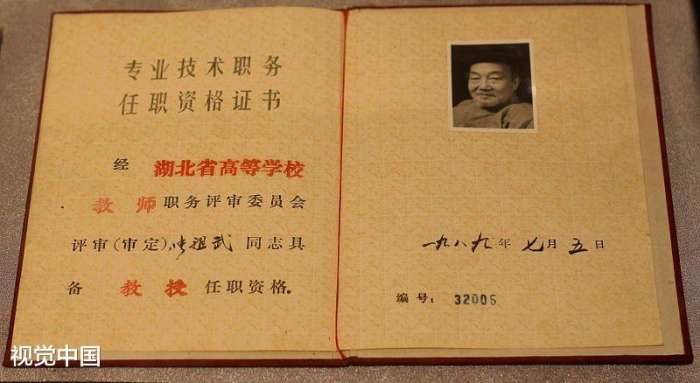 专业技术职务
任职资格证书
经 湖北省高等学校
教师职务评审委员会
评审(审定)张祖武同志具
备 教授 任职资格.
一九八九年七月五日
编号: 32006
视觉中国